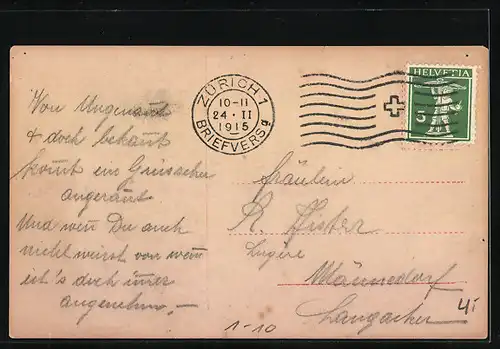 Von Ungenant
& doch bekant
komt ein Grüsschen
angerant
Und wen Du auch
nicht weisst von wem
ist's doch imer
angenehm. –
ZÜRICH 1
10-11
24·II
1915
BRIEFVERS
HELVETIA
5
Fräulein
R.
Männedorf
Langacker
1-10